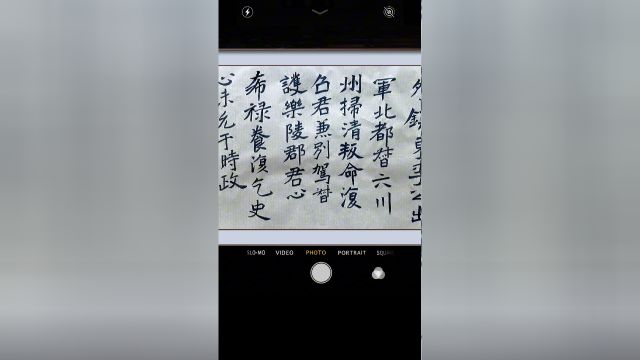 公出
軍北都督六川
州掃清叛命復
召君兼別駕督
護樂陵郡君心
希祿養復乞史
心未允于時政
SLO-MO VIDEO PHOTO PORTRAIT